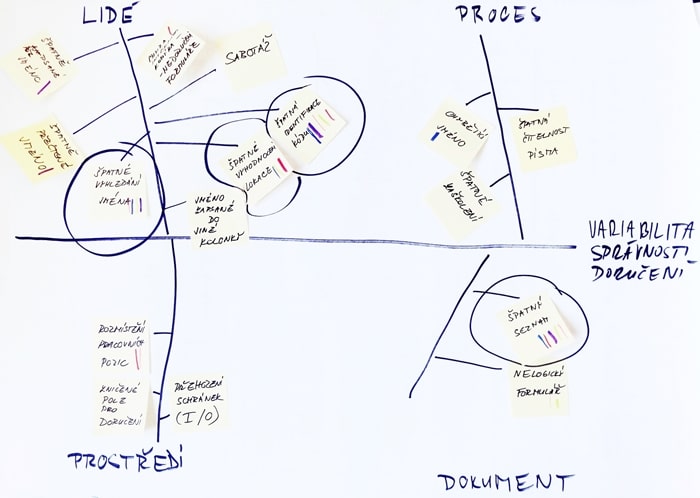 LIDÉ
PROCES
ŠPATNĚ
JMÉNO
NEDORUČENÍ
FORMULÁŘE
SABOTÁŽ
ŠPATNĚ
PŘEČTENÉ
JMÉNO
ŠPATNÁ
IDENTIFIKACE
KÓDU
ŠPATNÉ
VYHODNOCENÍ
LOKACE
ŠPATNÉ
VYHLEDÁNÍ
JMÉNA
JMÉNO
ZAPSANÉ
DO
JINÉ
KOLONKY
JMÉNO
ŠPATNÁ
ČITELNOST
PÍSMA
ŠPATNÉ
ZAŠKOLENÍ
VARIABILITA
SPRÁVNOSTI
DORUČENÍ
ROZMÍSTĚNÍ
PRACOVNÍCH
POZIC
POLE
PRO
DORUČENÍ
PŘEHOZENÍ
SCHRÁNEK
(I/O)
PROSTŘEDÍ
ŠPATNÝ
SEZNAM
NELOGICKÝ
FORMULÁŘ
DOKUMENT